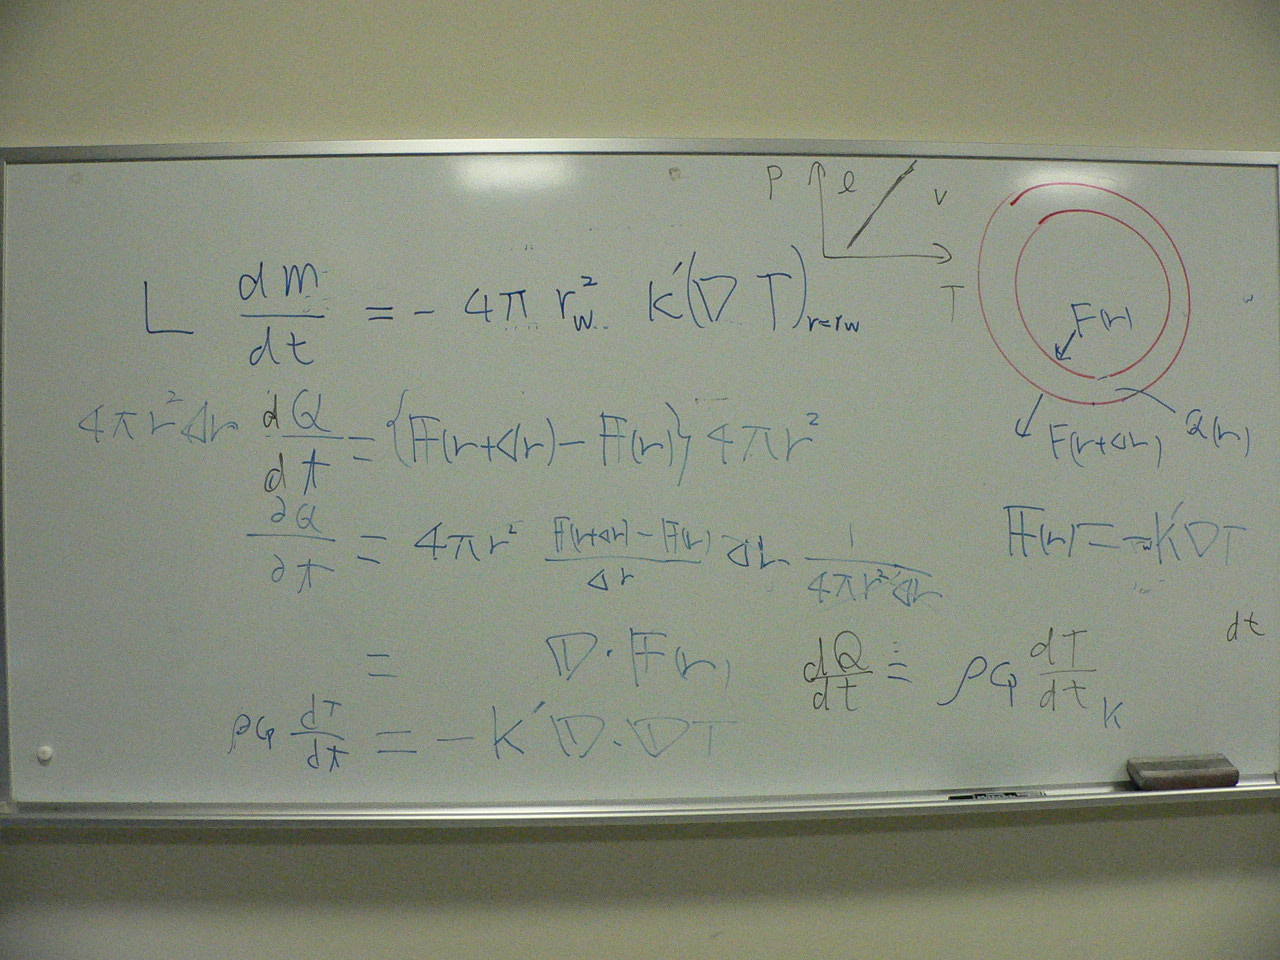 P l v
T
L dm/dt = - 4π r_w^2 K'(∇T)_{r=rw}
F(r)
4πr^2 Δr dQ/dt = {F(r+Δr) - F(r)} 4πr^2
F(r+Δr) Q(r)
∂Q/∂t = 4πr^2 (F(r+Δr) - F(r))/Δr Δr 1/(4πr^2 Δr)
F(r) = -K'∇T
= ∇·F(r)
dQ/dt = ρCp dT/dt
dt
K
ρCp dT/dt = -K'∇·∇T